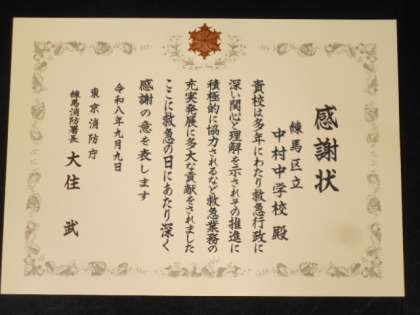 感謝状
練馬区立
中村中学校 殿
貴校は多年にわたり救急行政に
深い関心と理解を示されその推進に
積極的に協力されるなど救急業務の
充実発展に多大な貢献をされました
ここに救急の日にあたり深く
感謝の意を表します
令和八年九月九日
東京消防庁
練馬消防署長 大住 武